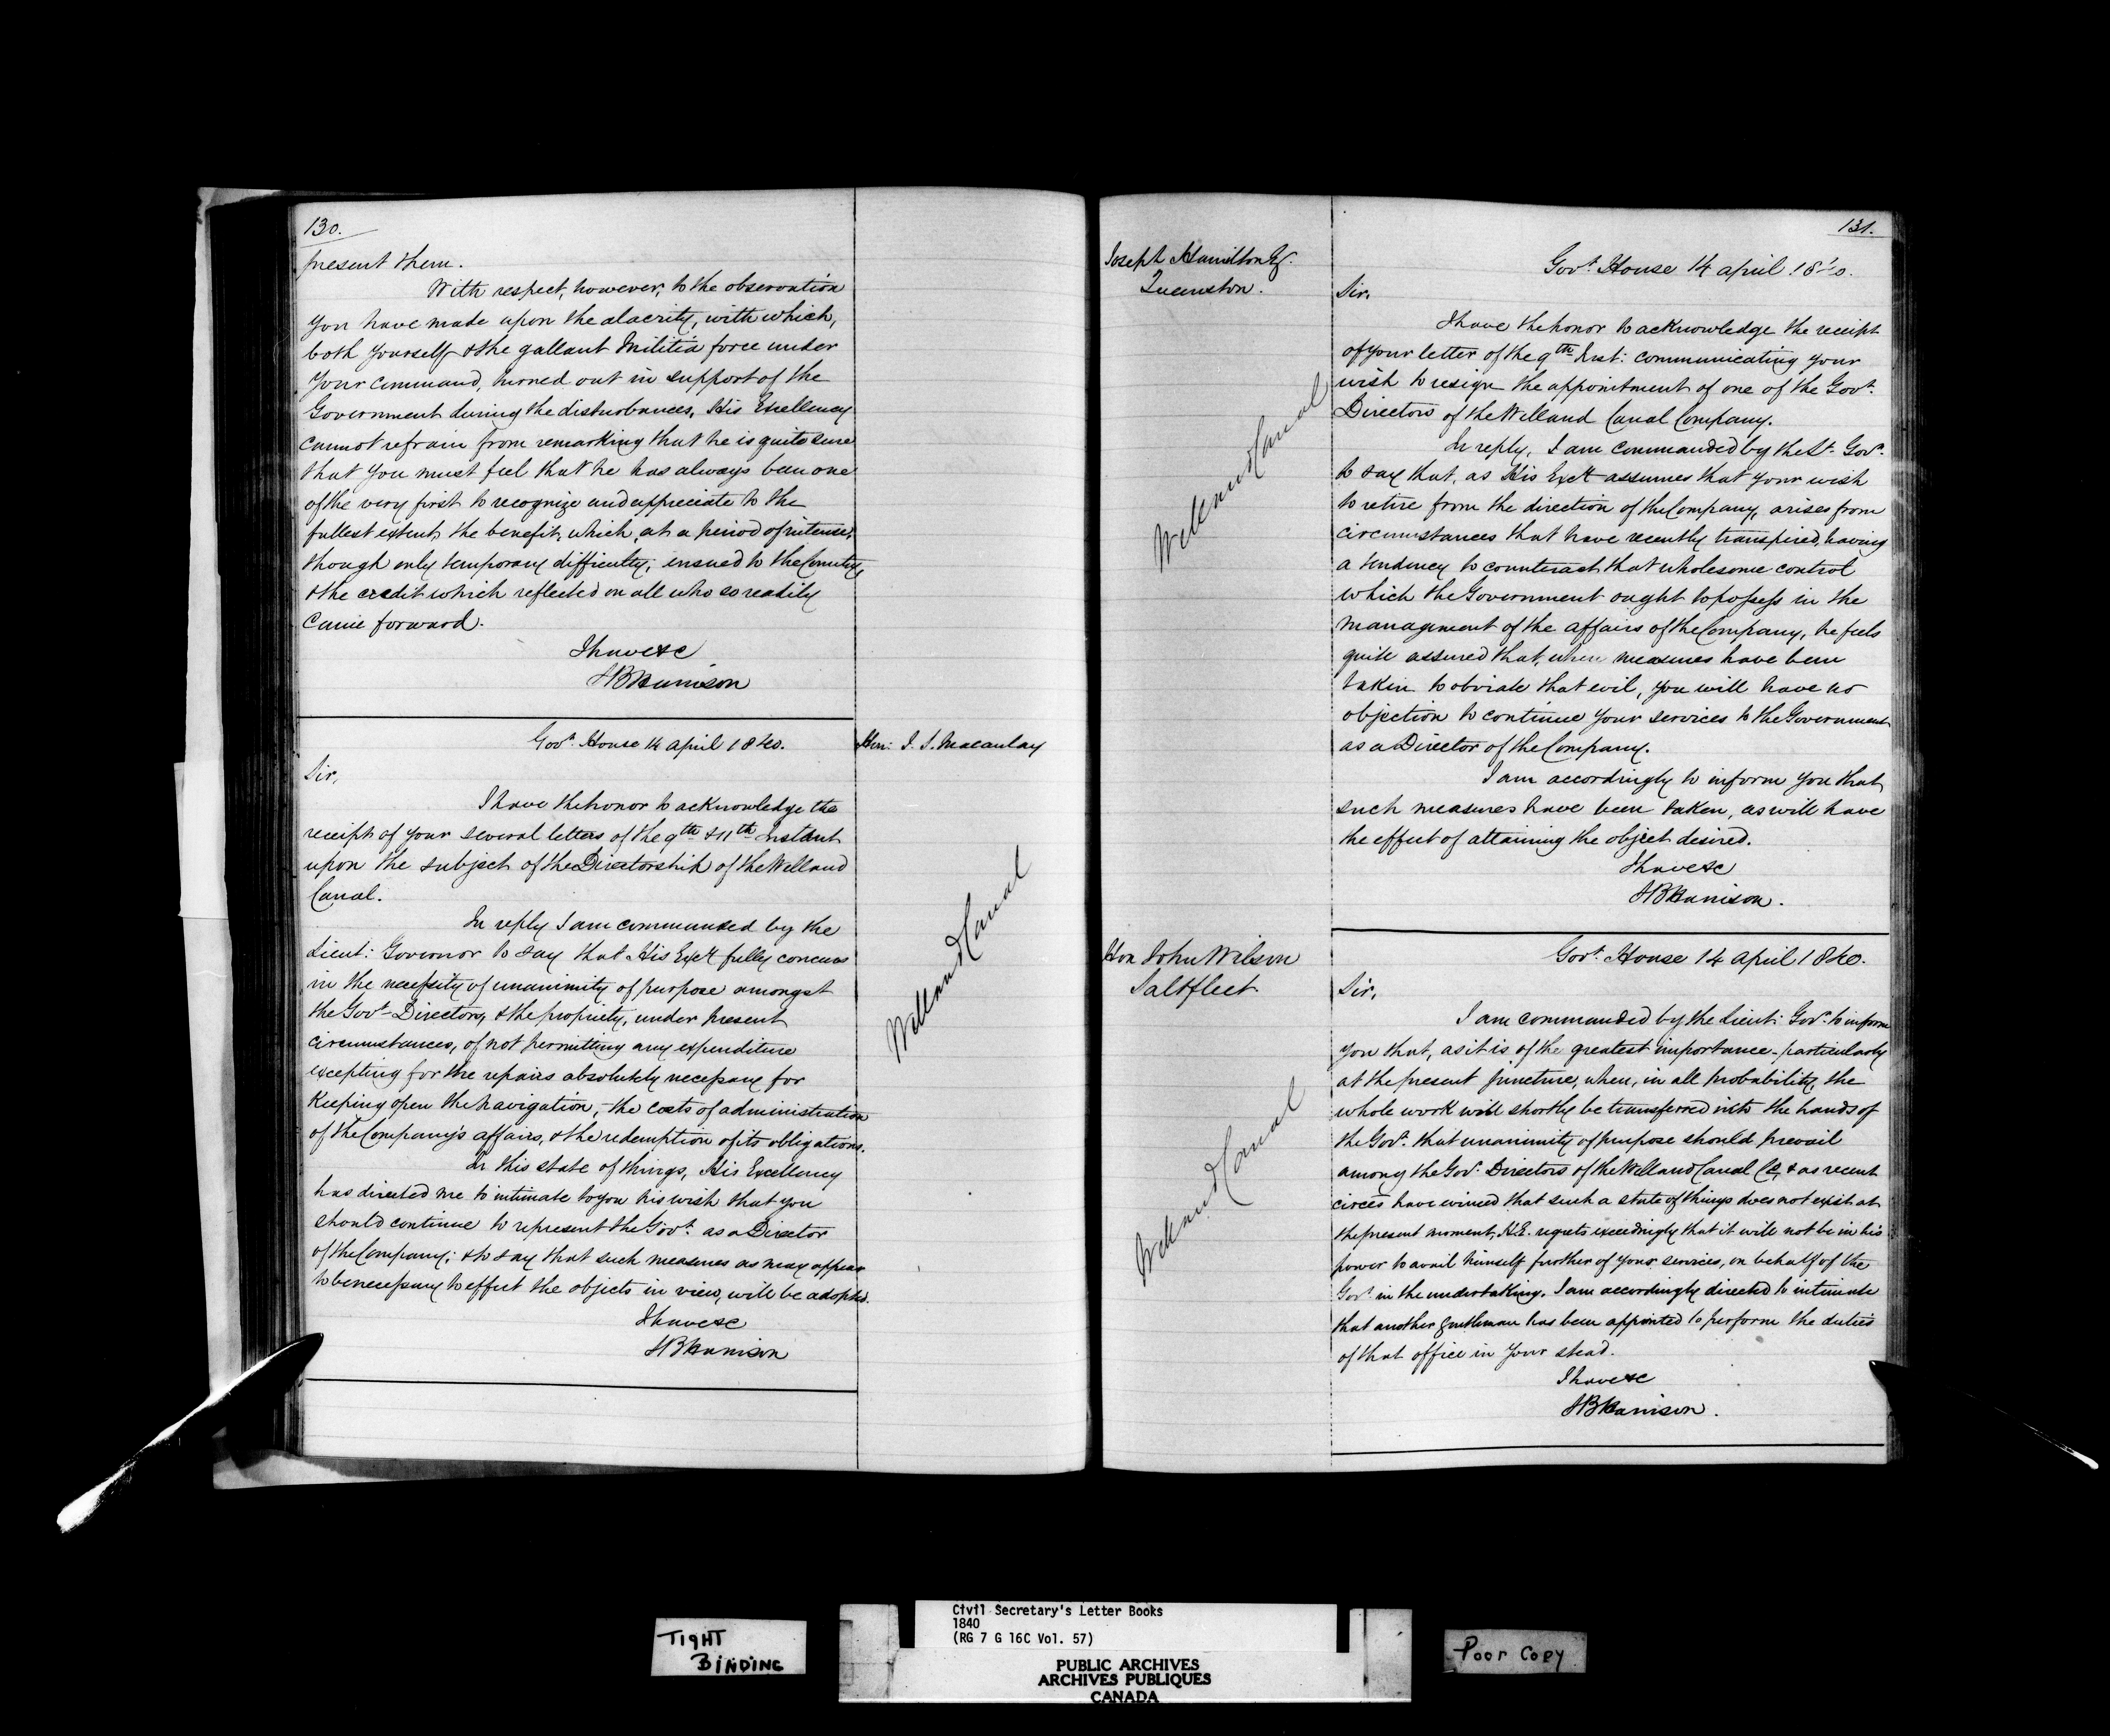 130.
present them.
With respect, however, to the observation
you have made upon the alacrity, with which,
both yourself & the gallant Militia force under
your command, turned out in support of the
Government during the disturbances, His Excellency
cannot refrain from remarking that he is quite sure
that you must feel that he has always been one
of the very first to recognize and appreciate to the
fullest extent the benefit, which, at a period of intense,
though only temporary difficulty, ensued to the Country,
& the credit which reflected on all who so readily
came forward.
I have &c
SB Harrison
Govt. House 14 April 1840.
Hon: J. S. Macaulay
Sir,
I have the honor to acknowledge the
receipt of your several letters of the 9th & 11th Instant
upon the subject of the Directorship of the Welland
Canal.
In reply I am commanded by the
Lieut: Governor to say that His Excy fully concurs
in the necessity of unanimity of purpose amongst
the Govt Directors, & the propriety, under present
circumstances, of not permitting any expenditure
excepting for the repairs absolutely necessary for
keeping open the navigation, – the costs of administration
of the Company's affairs, & the redemption of its obligations.
In this state of things, His Excellency
has directed me to intimate to you his wish that you
should continue to represent the Govt. as a Director
of the Company; & to say that such measures as may appear
to be necessary to effect the objects in view, will be adopted.
I have &c
SB Harrison
Welland Canal
131.
Joseph Hamilton Esq.
Queenston.
Govt. House 14 April 1840.
Sir,
I have the honor to acknowledge the receipt
of your letter of the 9th Inst: communicating your
wish to resign the appointment of one of the Govt.
Directors of the Welland Canal Company.
In reply, I am commanded by the Lt. Govr.
to say that, as His Excy assumes that your wish
to retire from the direction of the Company, arises from
circumstances that have recently transpired, having
a tendency to counteract that wholesome control
which the Government ought to possess in the
management of the affairs of the Company, he feels
quite assured that, when measures have been
taken to obviate that evil, you will have no
objection to continue your services to the Government
as a Director of the Company.
I am accordingly to inform you that
such measures have been taken, as will have
the effect of attaining the object desired.
I have &c
SB Harrison.
Welland Canal
Hon John Wilson
Saltfleet.
Govt. House 14 April 1840.
Sir,
I am commanded by the Lieut: Govr. to inform
you that, as it is of the greatest importance – particularly
at the present juncture, when, in all probability, the
whole work will shortly be transferred into the hands of
the Govt. that unanimity of purpose should prevail
among the Govt. Directors of the Welland Canal Co, & as recent
circes have evinced that such a state of things does not exist at
the present moment, H.E. regrets exceedingly that it will not be in his
power to avail himself further of your services, on behalf of the
Govt. in the undertaking. I am accordingly directed to intimate
that another gentleman has been appointed to perform the duties
of that office in your stead.
I have &c
SB Harrison.
Welland Canal
TIGHT
BINDING
Civil Secretary's Letter Books
1840
(RG 7 G 16C Vol. 57)
PUBLIC ARCHIVES
ARCHIVES PUBLIQUES
CANADA
Poor Copy